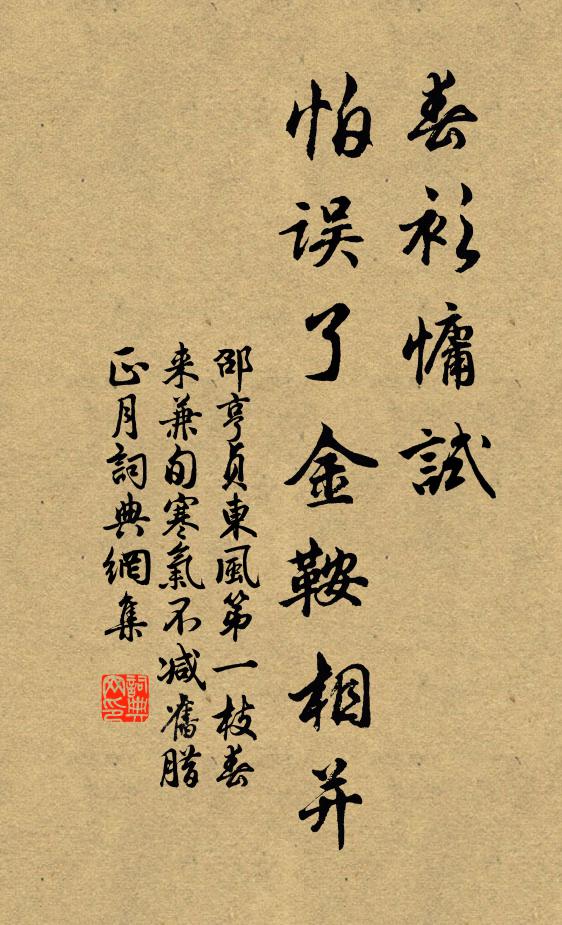 春衫慵試
怕误了金鞍相并
邵亨貞東風第一枝春
来兼旬寒氣不减舊腊
正月詞典網集